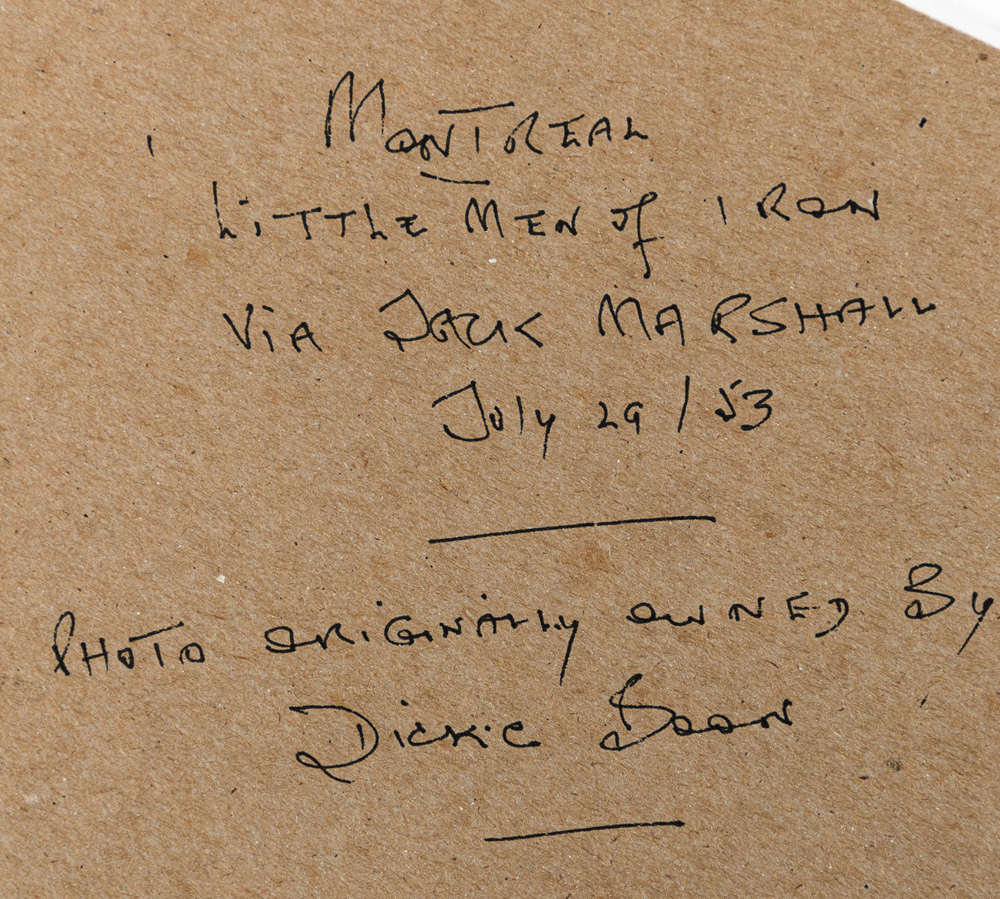 MONTREAL
LITTLE MEN of IRON
VIA JACK MARSHALL
July 29/53
PHOTO ORIGINALLY OWNED By
Dickie Boon